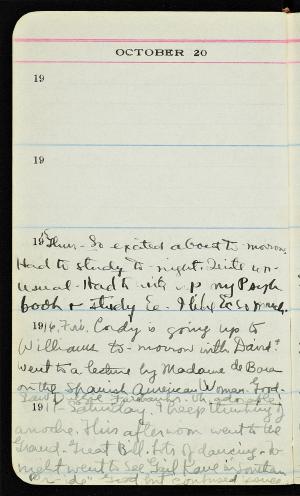 OCTOBER 20
19
19
19 Thur - So excited about to-morrow.
Had to study to-night. Quite un-
usual - Had to write up my Psych
book & study Ec. I like Ec so much.
1916, Fri. Cordy is going up to
Williams to-morrow with Dand.
Went to a lecture by Madame de
on the Spanish American Woman. Good.
Saw Doug Fairbanks. Oh, adorable
191 - Saturday. I keep thinking of
anoche. This afternoon went to the
Grand - Great Bill. lots of dancing. To-
night went to see Gail Kane in
"- do" Good but confused